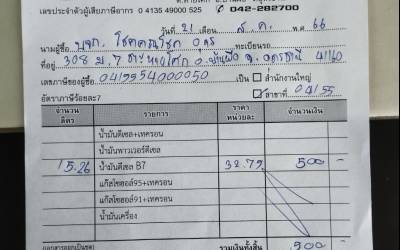 เลขประจำตัวผู้เสียภาษีอากร 0 4135 49000 525 042-282700
วันที่ 21 เดือน ส.ค. พ.ศ 66
นามผู้ซื้อ บจก. โชคคุณโชค อุดร ทะเบียนรถ
ที่อยู่ 308 ม.7 อ.บ้านผือ จ.อุดรธานี 41160
เลขภาษีของผู้ซื้อ 0412954000050 เป็น สำนักงานใหญ่
อัตราภาษีร้อยละ7 สาขาที่ 04155
จำนวนลิตร รายการ ราคาหน่วยละ จำนวนเงิน
น้ำมันดีเซล+เทครอน
น้ำมันพาวเวอร์ดีเซล
15.26 น้ำมันดีเซล B7 32.79 500 -
แก๊สโซฮอล์95+เทครอน
แก๊สโซฮอล์91+เทครอน
น้ำมันเครื่อง
รวมเงินทั้งสิ้น 500 -